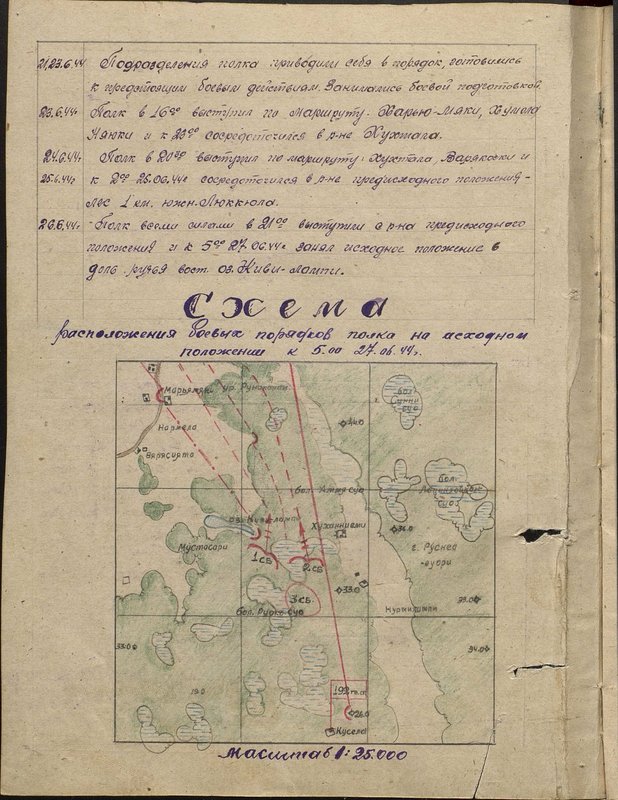 21,23.6.44 Подразделения полка приводили себя в порядок, готовились
к предстоящим боевым действиям. Занимались боевой подготовкой.
23.6.44г Полк в 16⁰⁰ выступил по маршруту: Харью-Мяки, Хумола
Няюки и к 23⁰⁰ сосредоточился в р-не Хухтала.
24.6.44г. Полк в 20⁰⁰ выступил по маршруту: Хухтала, Варякоски и
25.6.44г к 2⁰⁰ 25.06.44г сосредоточился в р-не предисходного положения-
лес 1 км. южн. Люккюла.
26.6.44г Полк всеми силами в 21⁰⁰ выступил с р-на предисходного
положения и к 5⁰⁰ 27.06.44г занял исходное положение в
доль ручья вост. оз. Киви-лампи.
Схема
расположения боевых порядков полка на исходном
положении к 5.00 27.06.44г.
Марьямяки
ур.
бол.
суо
Нармела
Вярясиятa
44.0
бол.
суо
оз. Киви-лампи
Мустасари
1 СБ
2 СБ
3 СБ
г. Руснеа
-вуори
33.0
39.0
33.0
34.0
19.0
192 гв. ап
26.0
Кусела
Масштаб 1:25.000